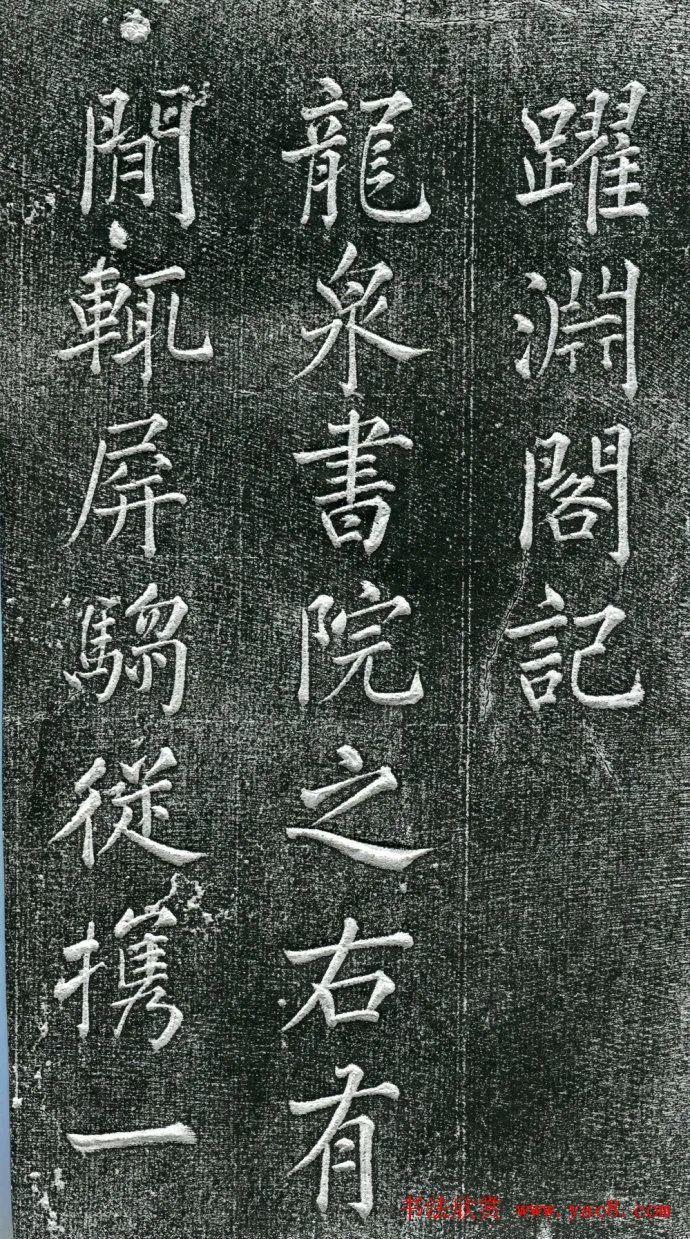 躍淵閣記
龍泉書院之右有
閒輒屏騶從擕一
书法欣赏 www.yac8.com